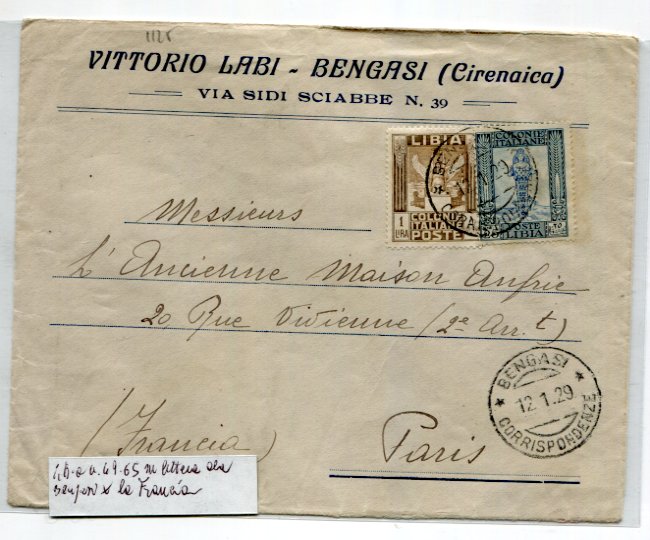 1125
VITTORIO LABI - BENGASI (Cirenaica)
VIA SIDI SCIABBE N. 39
LIBIA
1 LIRA
COLONIE ITALIANE
POSTE
COLONIE ITALIANE
POSTE
LIBIA
Messieurs
L'Ancienne Maison
20 Rue Vivienne (2e Arr.t)
BENGASI
12.1.29
CORRISPONDENZE
(Francia)
Paris
49-65 lettera da
x la Francia